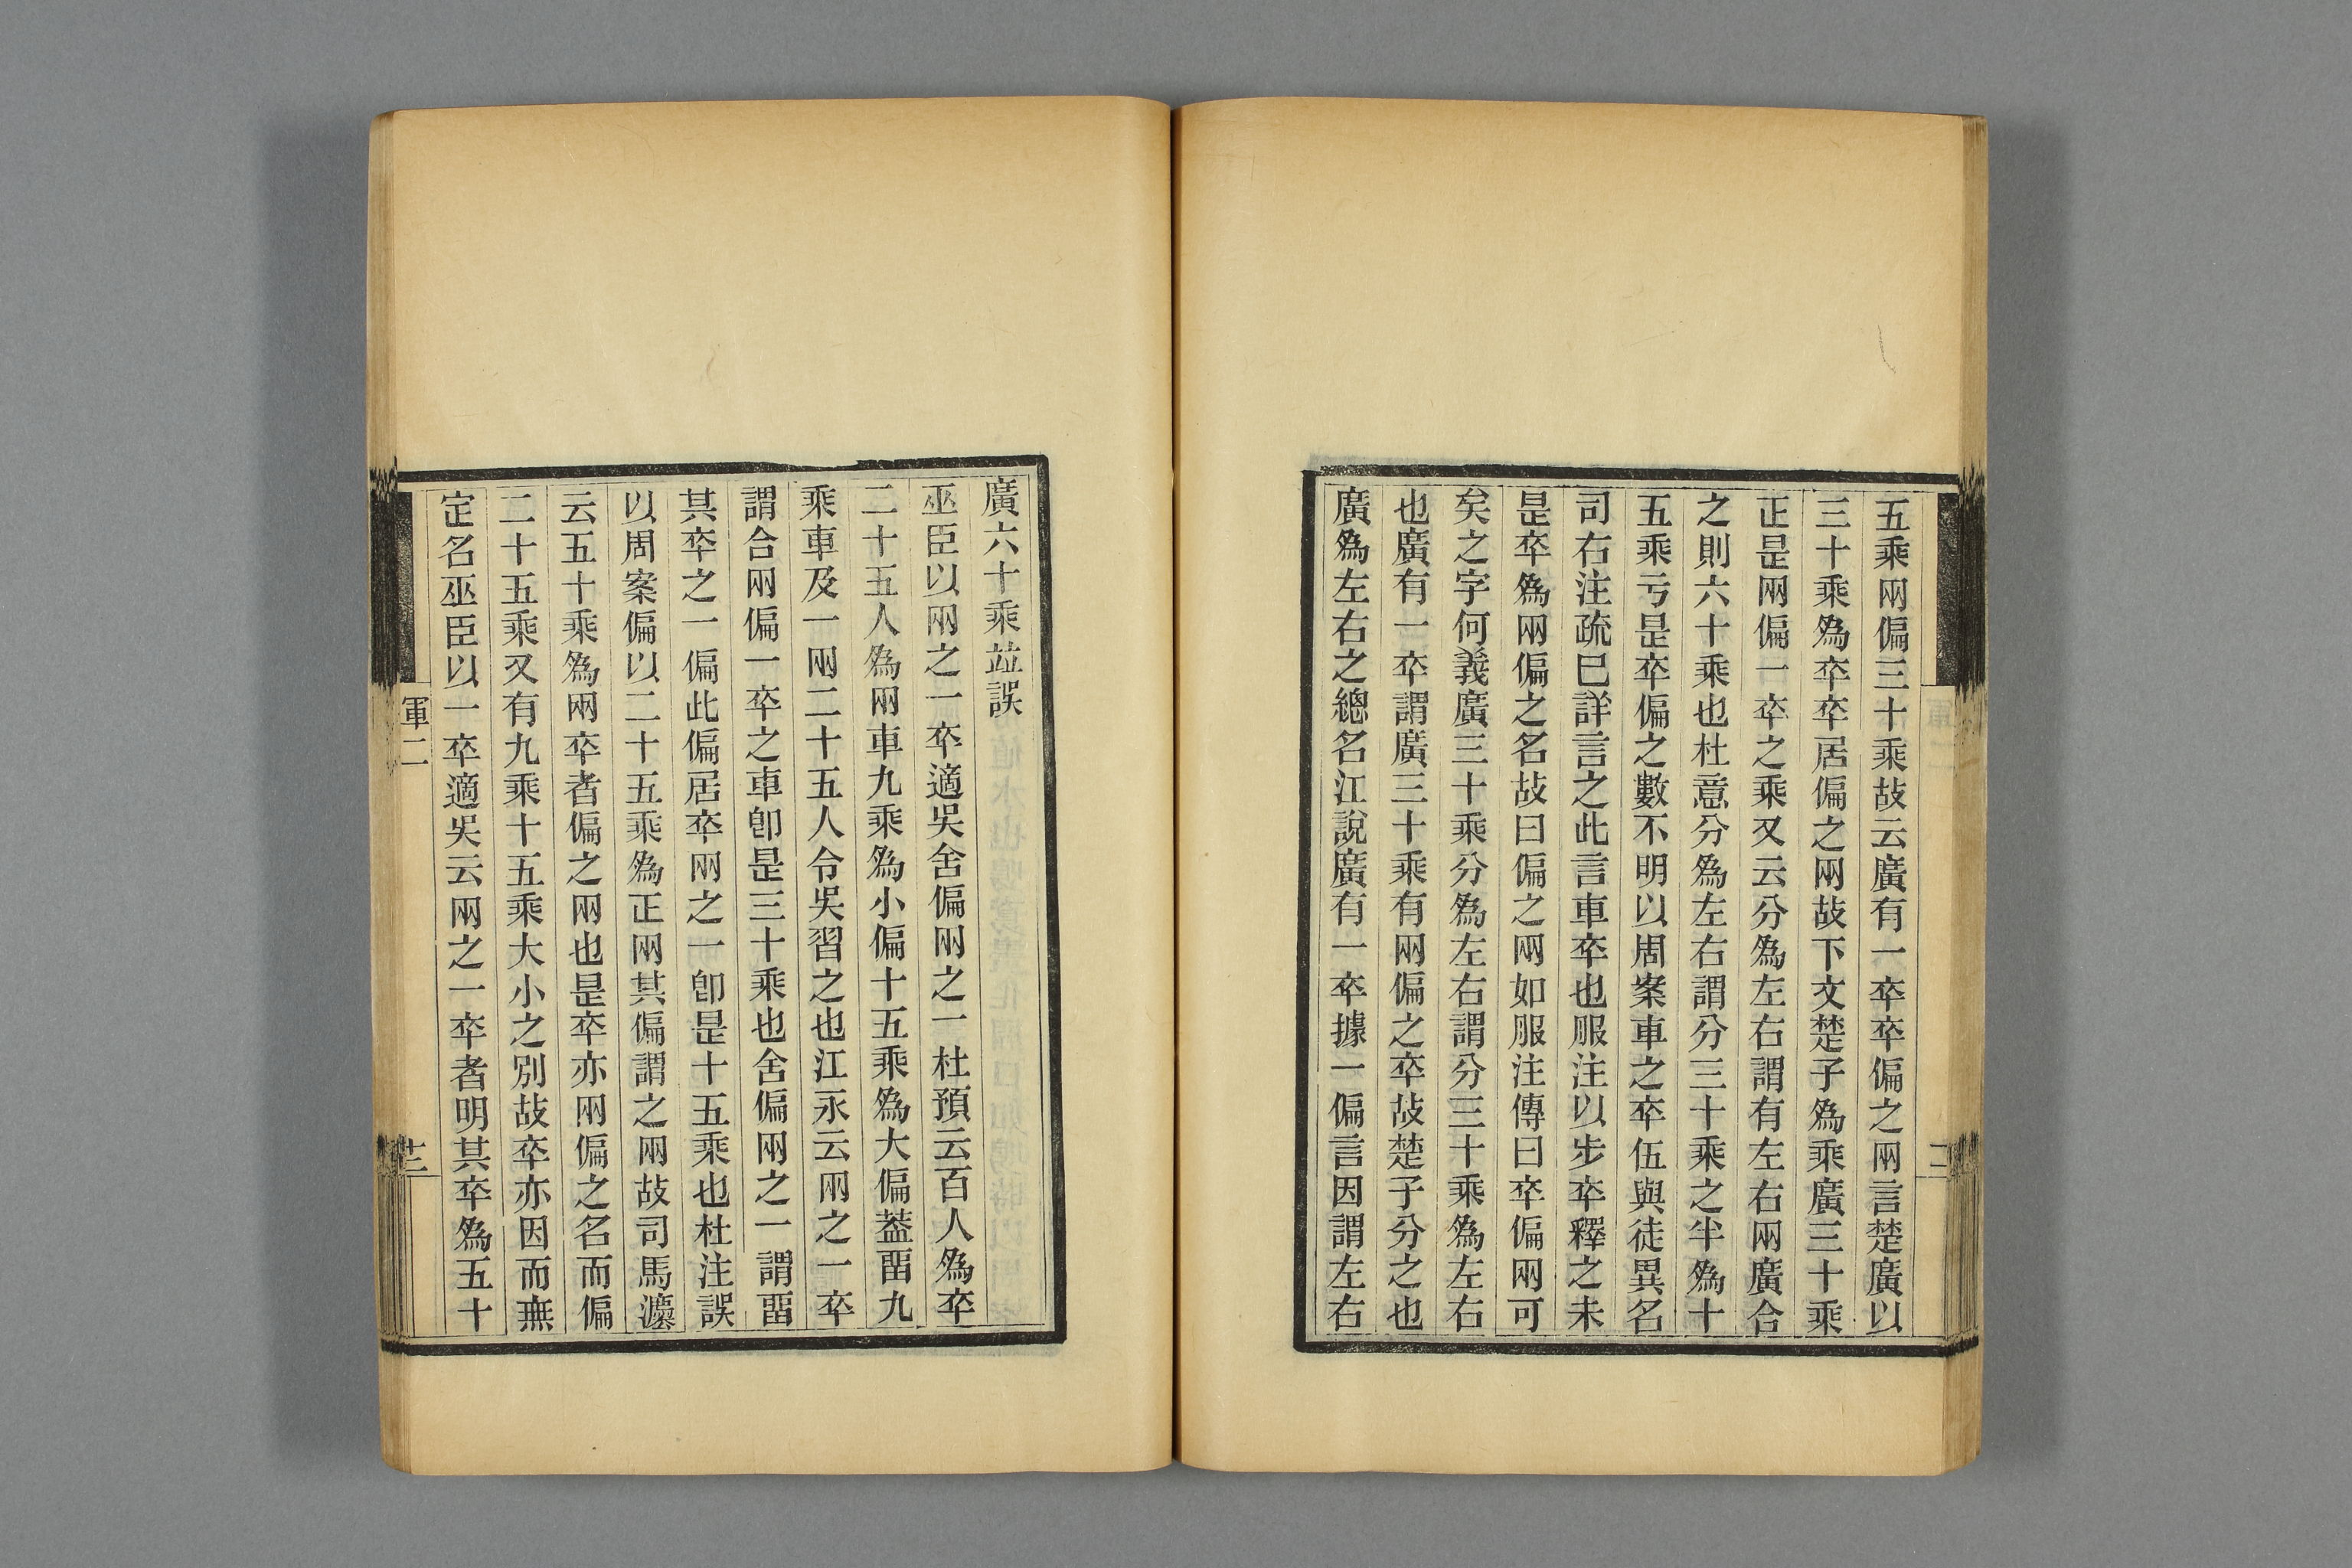 五乘兩偏三十乘故云廣有一卒卒偏之兩言楚廣以
三十乘爲卒卒居偏之兩故下文楚子爲乘廣三十乘
正是兩偏一卒之乘又云分爲左右謂有左右兩廣合
之則六十乘也杜意分爲左右謂分三十乘之半爲十
五乘亏是卒偏之數不明以周案車之卒伍與徒異名
司右注疏已詳言之此言車卒也服注以步卒釋之未
是卒爲兩偏之名故曰偏之兩如服注傳曰卒偏兩可
矣之字何義廣三十乘分爲左右謂分三十乘爲左右
也廣有一卒謂廣三十乘有兩偏之卒故楚子分之也
廣爲左右之總名江說廣有一卒據一偏言因謂左右
廣六十乘竝誤
巫臣以兩之一卒適吳舍偏兩之一杜預云百人爲卒
二十五人爲兩車九乘爲小偏十五乘爲大偏葢畱九
乘車及一兩二十五人令吳習之也江永云兩之一卒
謂合兩偏一卒之車卽是三十乘也舍偏兩之一謂畱
其卒之一偏此偏居卒兩之一卽是十五乘也杜注誤
以周案偏以二十五乘爲正兩其偏謂之兩故司馬灋
云五十乘爲兩卒者偏之兩也是卒亦兩偏之名而偏
二十五乘又有九乘十五乘大小之別故卒亦因而無
定名巫臣以一卒適吳云兩之一卒者明其卒爲五十
軍二
十三